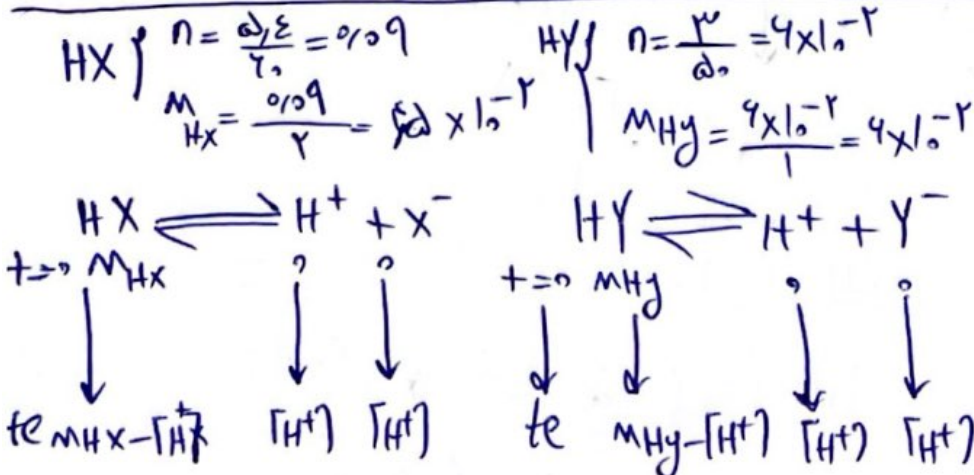 HX { n = ۵٫۴/۶۰ = ۰٫۰۹
M HX = ۰٫۰۹/۲ = ۴٫۵ × ۱۰^-۲
HY { n = ۳/۵۰ = ۶×۱۰^-۲
M HY = ۶×۱۰^-۲/۱ = ۶×۱۰^-۲
HX ⇌ H⁺ + X⁻
t=۰ M HX ۰ ۰
te M HX-[H⁺] [H⁺] [H⁺]
HY ⇌ H⁺ + Y⁻
t=۰ M HY ۰ ۰
te M HY-[H⁺] [H⁺] [H⁺]